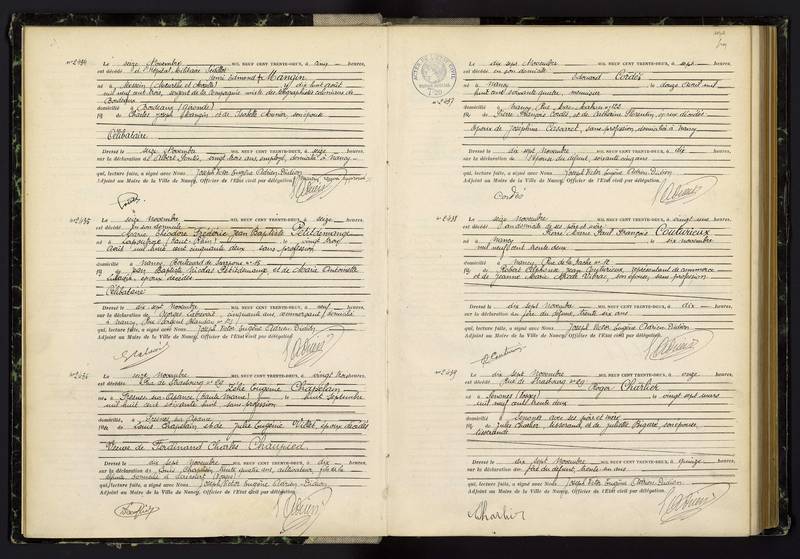 N° 2434
Le seize Novembre MIL NEUF CENT TRENTE-DEUX, à cinq heures,
est décédé à l'hôpital Militaire Sédillot
Henri Edmond Mangin
né à Messein (Meurthe et Moselle) le dix huit août
mil neuf cent trois, sergent de la compagnie mixte des télégraphistes coloniaux de
Bordeaux
domicilié à Bordeaux (Gironde)
fils de Charles Joseph Mangin et de son épouse
Célibataire
Dressé le seize Novembre MIL NEUF CENT TRENTE-DEUX, à seize heures,
sur la déclaration de Albert vingt trois ans, employé, domicilié à Nancy
qui, lecture faite, a signé avec Nous Joseph Victor Eugène Adrien Didion
Adjoint au Maire de la Ville de Nancy, Officier de l'Etat civil par délégation.
N° 2435
Le seize novembre MIL NEUF CENT TRENTE-DEUX, à seize heures,
est décédé en son domicile
Marie Théodore Frédéric Jean Baptiste Petitdemange
né à Lapoutroye (Haut-Rhin) le vingt trois
Août mil huit cent cinquante deux sans profession
domicilié à Nancy, Boulevard de
fils de Jean Baptiste Nicolas Petitdemange et de Marie Antoinette
époux décédés
Célibataire
Dressé le dix sept Novembre MIL NEUF CENT TRENTE-DEUX, à neuf heures,
sur la déclaration de Georges cinquante ans, domicilié
à Nancy, Rue Sergent Blandan n° 23
qui, lecture faite, a signé avec Nous Joseph Victor Eugène Adrien Didion
Adjoint au Maire de la Ville de Nancy, Officier de l'Etat civil par délégation.
N° 2436
Le seize Novembre MIL NEUF CENT TRENTE-DEUX, à vingt trois heures,
est décédée Rue de Strasbourg n° 29 Zélie Eugénie Chapelain
née à Fresnes-sur-Apance (Haute-Marne) le huit Septembre
mil huit cent soixante huit sans profession
domiciliée à Fresnes sur Apance
fille de Louis Chapelain et de Julie Eugénie époux décédés
Veuve de Ferdinand Charles Chaupied
Dressé le dix sept Novembre MIL NEUF CENT TRENTE-DEUX, à dix heures,
sur la déclaration de Louis trente ans, cultivateur, fils de la
défunte domicilié à
qui, lecture faite, a signé avec Nous Joseph Victor Eugène Adrien Didion
Adjoint au Maire de la Ville de Nancy, Officier de l'Etat civil par délégation.
N° 2437
Le dix sept Novembre MIL NEUF CENT TRENTE-DEUX, à sept heures,
est décédé en son domicile
Edouard Cordés
né à Nancy le douze Avril mil
huit cent soixante quatre menuisier
domicilié à Nancy, Rue
fils de Pierre François Cordés et de Catherine Florentin, époux décédés
Epoux de Joséphine sans profession, domiciliée à Nancy
Dressé le dix sept Novembre MIL NEUF CENT TRENTE-DEUX, à dix heures,
sur la déclaration de l'épouse du défunt, soixante cinq ans
qui, lecture faite, a signé avec Nous Joseph Victor Eugène Adrien Didion
Adjoint au Maire de la Ville de Nancy, Officier de l'Etat civil par délégation.
Cordés
N° 2438
Le seize novembre MIL NEUF CENT TRENTE-DEUX, à vingt une heures,
est décédé au domicile de ses père et mère
Pierre Marie Paul François Couturieux
né à Nancy le six novembre
mil neuf cent trente deux
domicilié à Nancy, Rue
fils de Robert Alphonse Jean Couturieux, représentant de commerce
et de Jeanne Marie son épouse, sans profession
Dressé le dix sept Novembre MIL NEUF CENT TRENTE-DEUX, à dix heures,
sur la déclaration du père du défunt, trente six ans
qui, lecture faite, a signé avec Nous Joseph Victor Eugène Adrien Didion
Adjoint au Maire de la Ville de Nancy, Officier de l'Etat civil par délégation.
N° 2439
Le dix sept Novembre MIL NEUF CENT TRENTE-DEUX, à onze heures,
est décédé Rue de Strasbourg n° 29
Roger Charlier
né à Senones (Vosges) le vingt sept mars
mil neuf cent trente deux
domicilié à Senones avec ses père et mère
fils de Jules Charlier, tisserand, et de Juliette son épouse,
tisserande
Dressé le dix sept Novembre MIL NEUF CENT TRENTE-DEUX, à quinze heures,
sur la déclaration du père du défunt, trente un ans
qui, lecture faite, a signé avec Nous Joseph Victor Eugène Adrien Didion
Adjoint au Maire de la Ville de Nancy, Officier de l'Etat civil par délégation.
Charlier